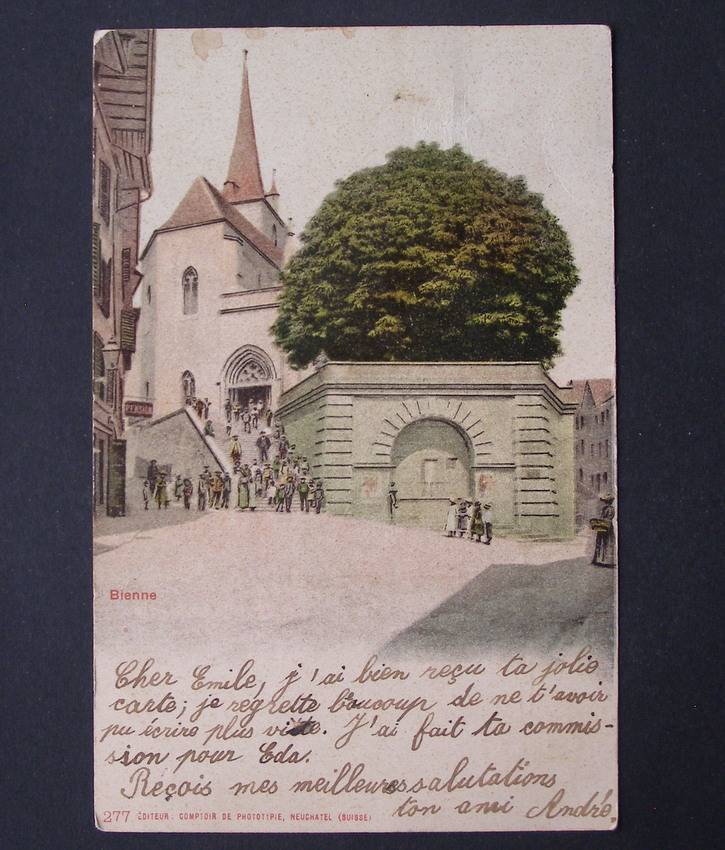 PENSION
Bienne
Cher Emile, j'ai bien reçu ta jolie
carte; je regrette boucoup de ne t'avoir
pu écrire plus vite. J'ai fait ta commis-
sion pour Eda.
Reçois mes meilleures salutations
ton ami André.
277 EDITEUR: COMPTOIR DE PHOTOTIPIE, NEUCHATEL (SUISSE)